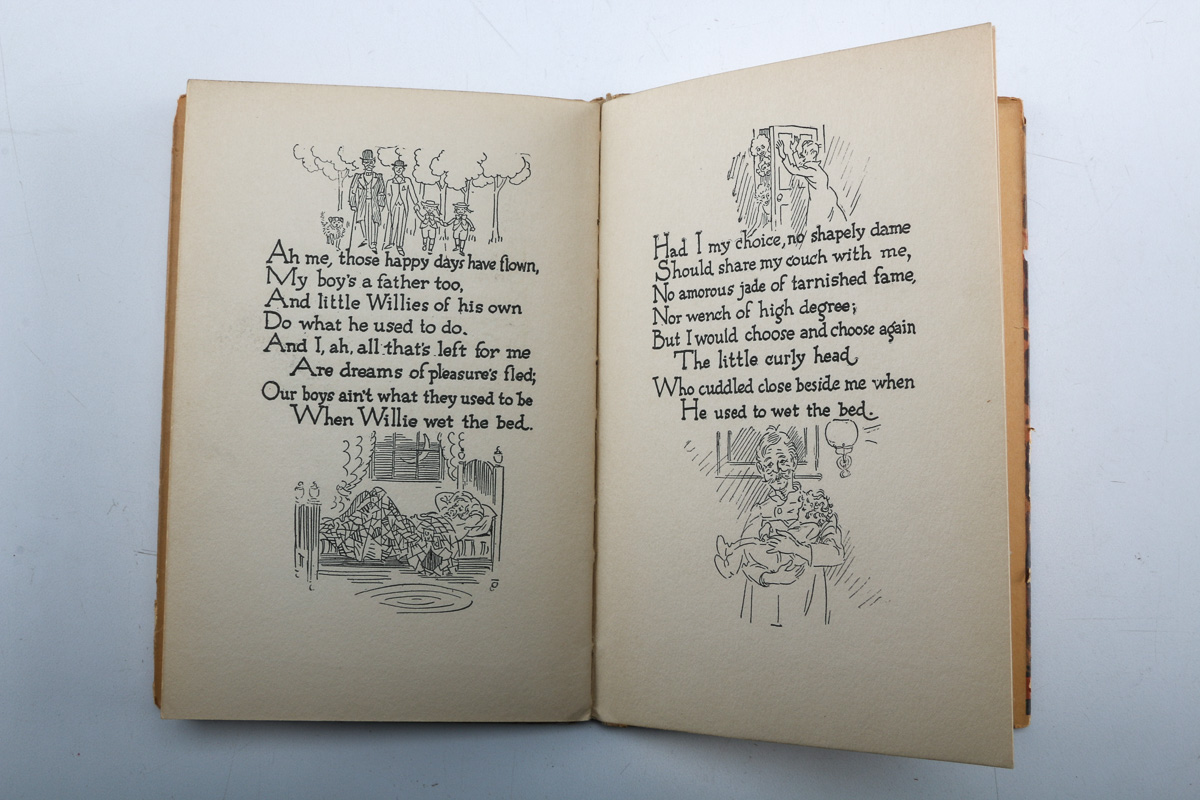 Ah me, those happy days have flown,
My boy's a father too,
And little Willies of his own
Do what he used to do.
And I, ah, all that's left for me
Are dreams of pleasure's fled;
Our boys ain't what they used to be
When Willie wet the bed.
Had I my choice, no shapely dame
Should share my couch with me,
No amorous jade of tarnished fame,
Nor wench of high degree;
But I would choose and choose again
The little curly head
Who cuddled close beside me when
He used to wet the bed.